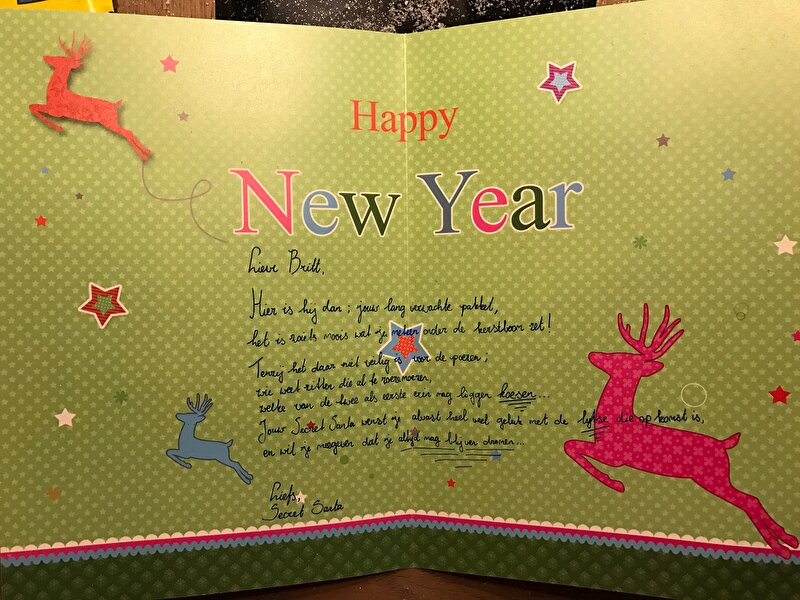 Happy
New Year
Lieve Britt,
Hier is hij dan ; jouw lang verwachte pakket,
het is zoiets moois wat je meteen onder de kerstboom zet!
Tenzij het daar niet veilig is voor de poezen ;
wie weet zitten die al te roezemoezen,
welke van de twee als eerste erin mag liggen koesen...
Jouw Secret Santa wenst je alvast heel veel geluk met de liefde die op komst is,
en wil je meegeven dat je altijd mag blijven dromen...
Liefs,
Secret Santa